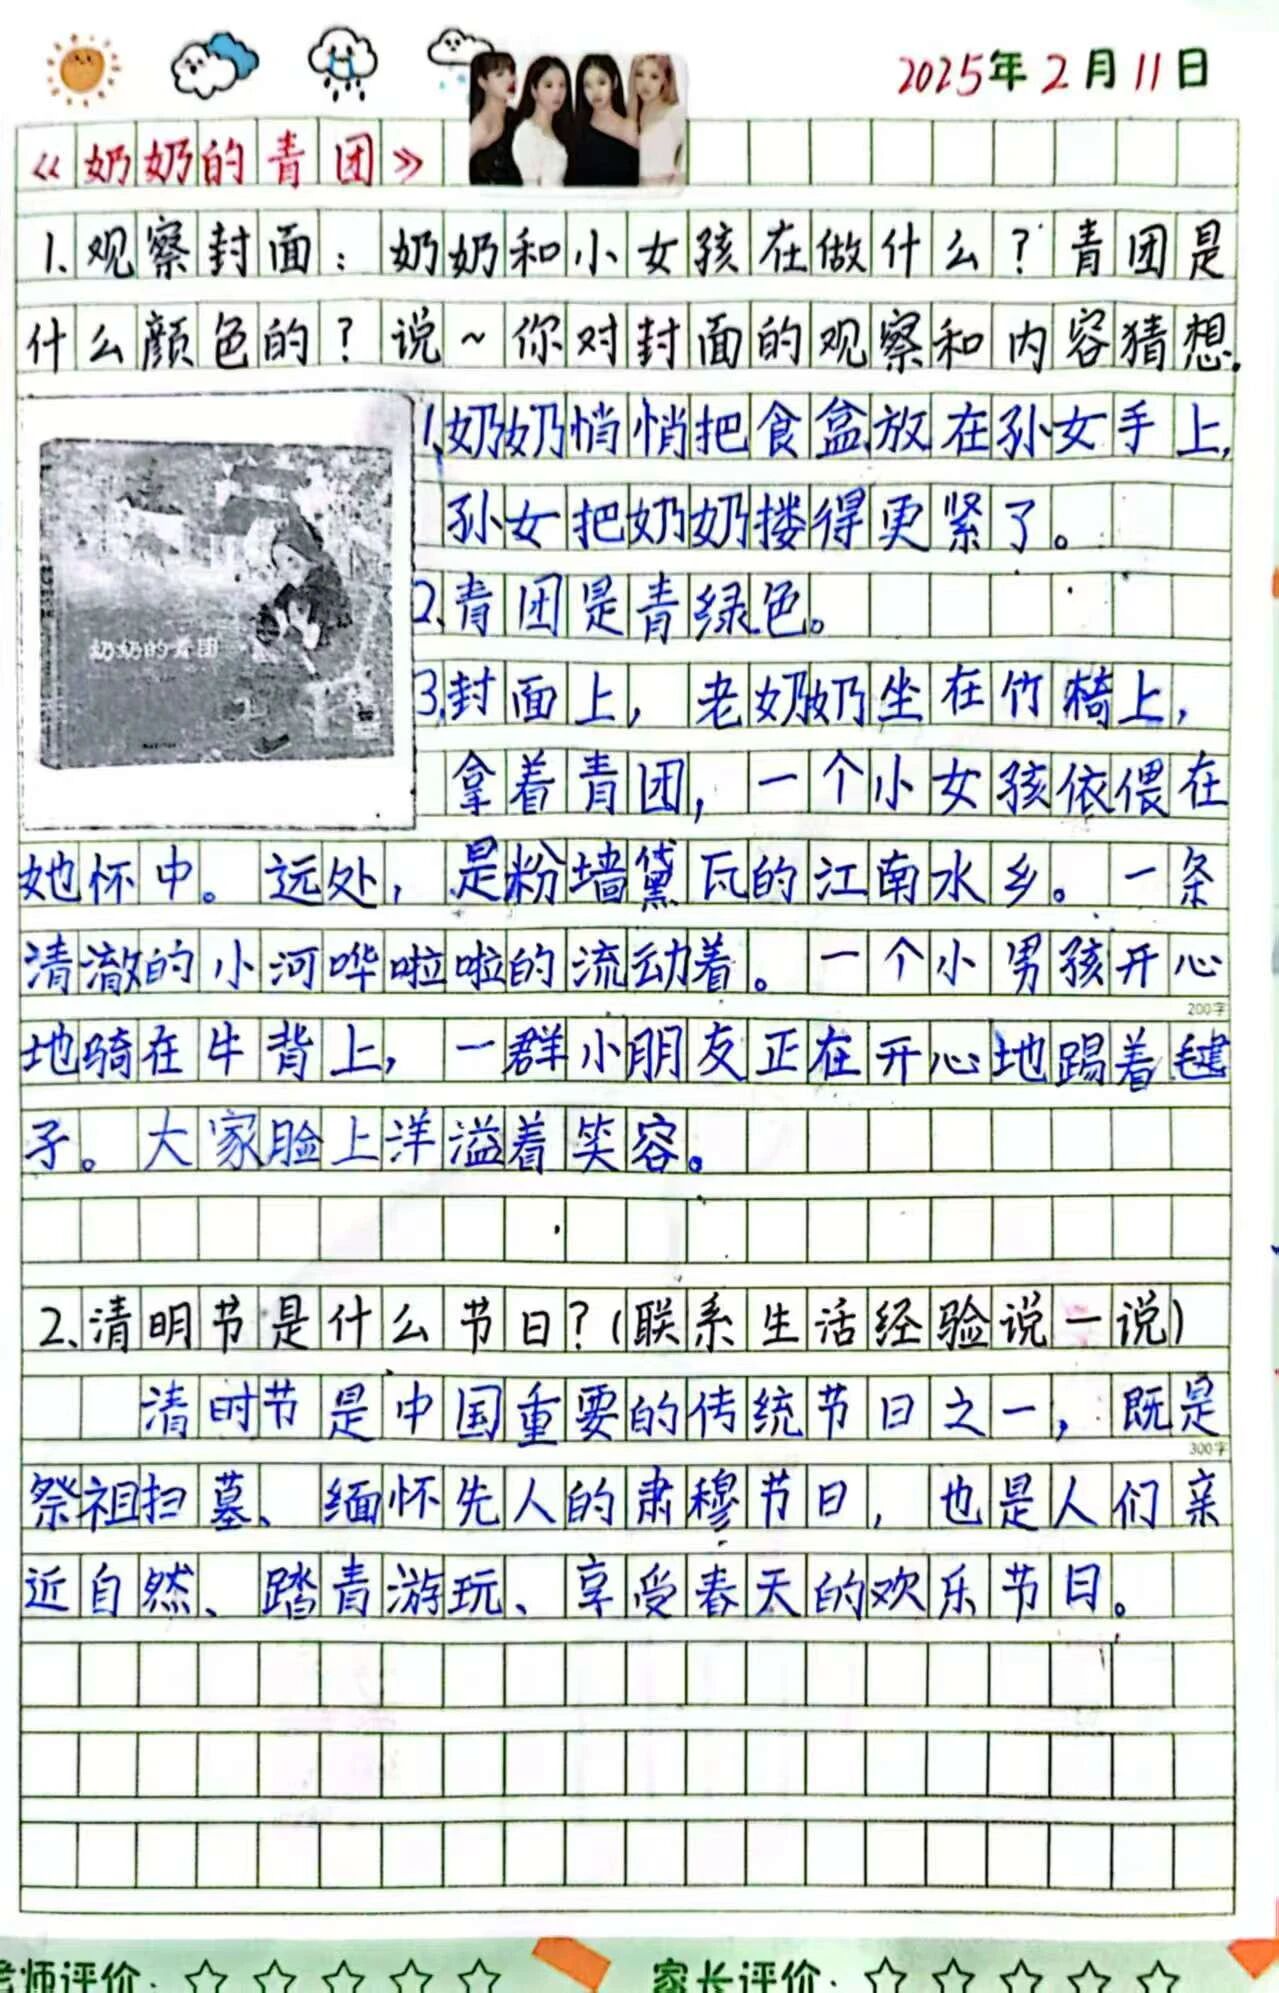 2025年2月11日
《奶奶的青团》
1.观察封面：奶奶和小女孩在做什么？青团是
什么颜色的？说~你对封面的观察和内容猜想.
1.奶奶悄悄把食盒放在孙女手上,
孙女把奶奶搂得更紧了。
2.青团是青绿色。
3.封面上，老奶奶坐在竹椅上，
奶奶的青团
拿着青团，一个小女孩依偎在
她怀中。远处，是粉墙黛瓦的江南水乡。一条
清澈的小河哗啦啦的流动着。一个小男孩开心
200字
地骑在牛背上，一群小朋友正在开心地踢着毽
子。大家脸上洋溢着笑容。
2.清明节是什么节日？(联系生活经验说一说)
清时节是中国重要的传统节日之一，既是
300字
祭祖扫墓、缅怀先人的肃穆节日，也是人们亲
近自然、踏青游玩、享受春天的欢乐节日。
老师评价：☆☆☆☆☆ 家长评价：☆☆☆☆☆